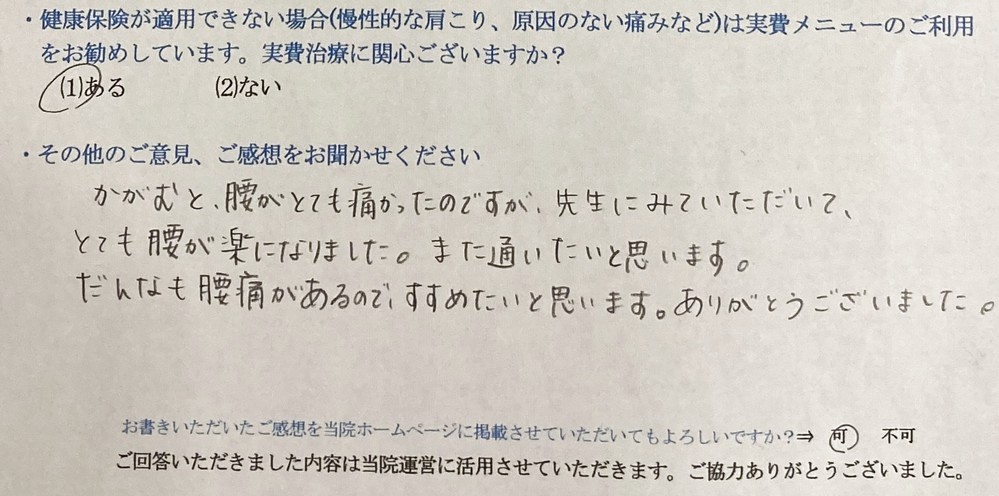 ・健康保険が適用できない場合(慢性的な肩こり、原因のない痛みなど)は実費メニューのご利用
をお勧めしています。実費治療に関心ございますか？
(1)ある　(2)ない
・その他のご意見、ご感想をお聞かせください
かがむと、腰がとても痛かったのですが、先生にみていただいて、
とても腰が楽になりました。また通いたいと思います。
だんなも腰痛があるので、すすめたいと思います。ありがとうございました。
お書きいただいたご感想を当院ホームページに掲載させていただいてもよろしいですか？⇒ 可　不可
ご回答いただきました内容は当院運営に活用させていただきます。ご協力ありがとうございました。